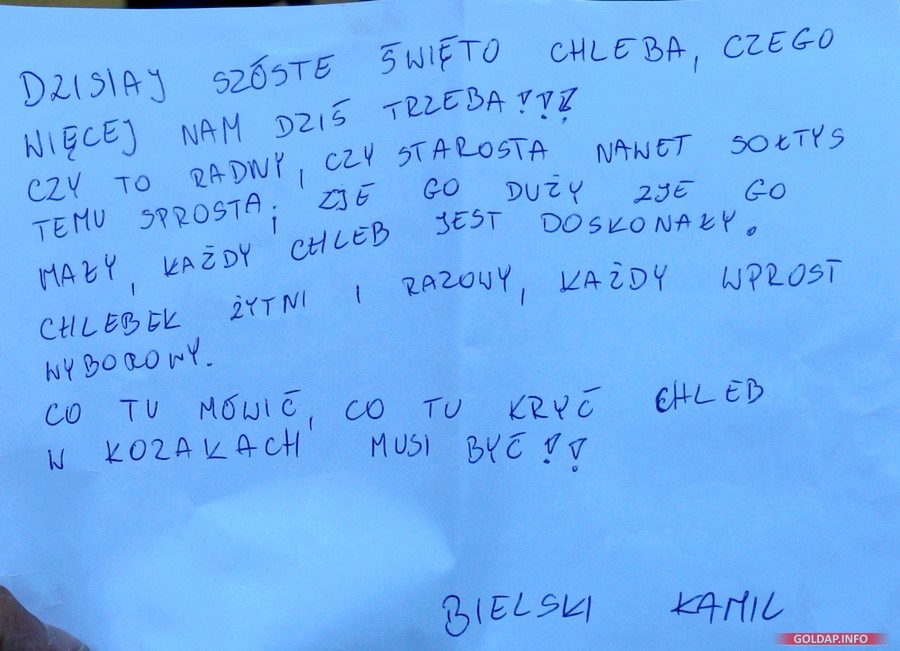 DZISIAJ SZÓSTE ŚWIĘTO CHLEBA, CZEGO
WIĘCEJ NAM DZIŚ TRZEBA!!!
CZY TO RADNY, CZY STAROSTA NAWET SOŁTYS
TEMU SPROSTA; ZJE GO DUŻY ZJE GO
MAŁY, KAŻDY CHLEB JEST DOSKONAŁY.
CHLEBEK ŻYTNI I RAZOWY, KAŻDY WPROST
WYBOROWY.
CO TU MÓWIĆ, CO TU KRYĆ CHLEB
W KOZAKACH MUSI BYĆ!!
BIELSKI KAMIL
GOLDAP.INFO